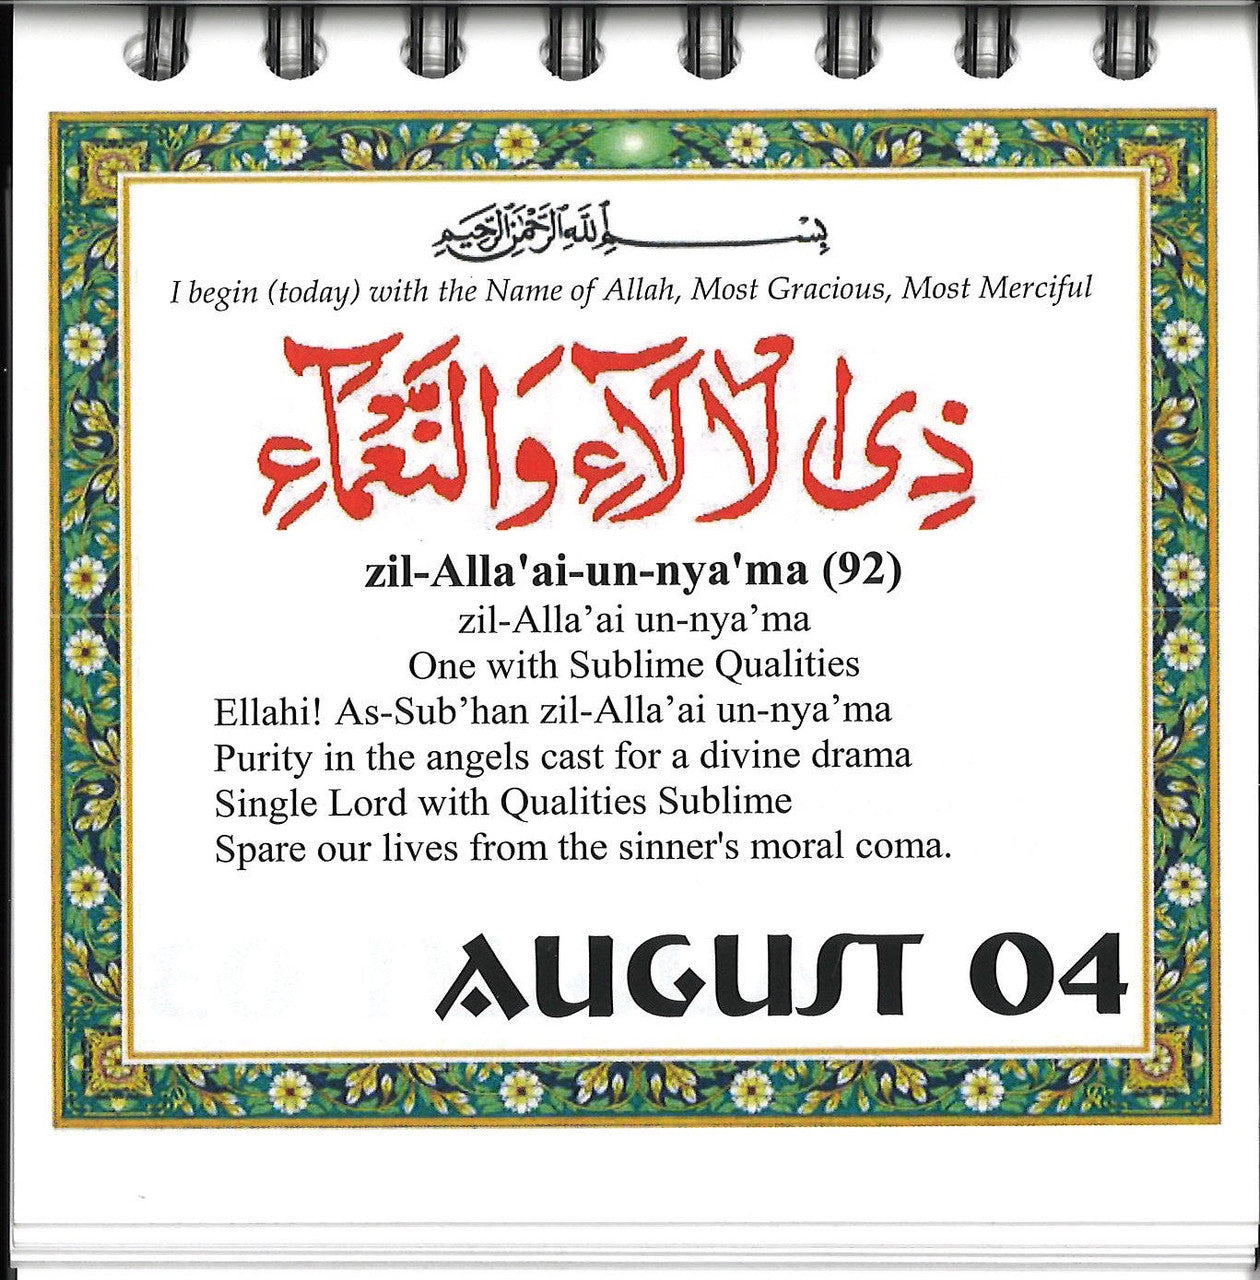 بِسْمِ اللهِ الرَّحْمٰنِ الرَّحِيمِ
I begin (today) with the Name of Allah, Most Gracious, Most Merciful
ذِى الاَلاَءِ وَالنَّعْمَاءِ
zil-Alla'ai-un-nya'ma (92)
zil-Alla’ai un-nya’ma
One with Sublime Qualities
Ellahi! As-Sub’han zil-Alla’ai un-nya’ma
Purity in the angels cast for a divine drama
Single Lord with Qualities Sublime
Spare our lives from the sinner's moral coma.
AUGUST 04